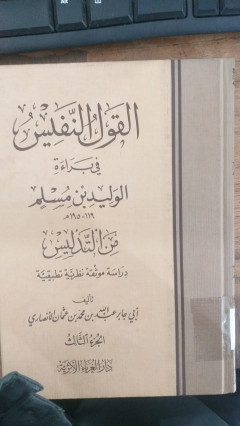 القول النفيس
في براءة
الوليد بن مسلم
١١٩ - ١٩٥ هـ
من التدليس
دراسة موثقة نظرية تطبيقية
تأليف
أبي جابر عبد الله بن محمد بن عثمان الأنصاري
الجزء الثالث
دار الغرباء الأثرية